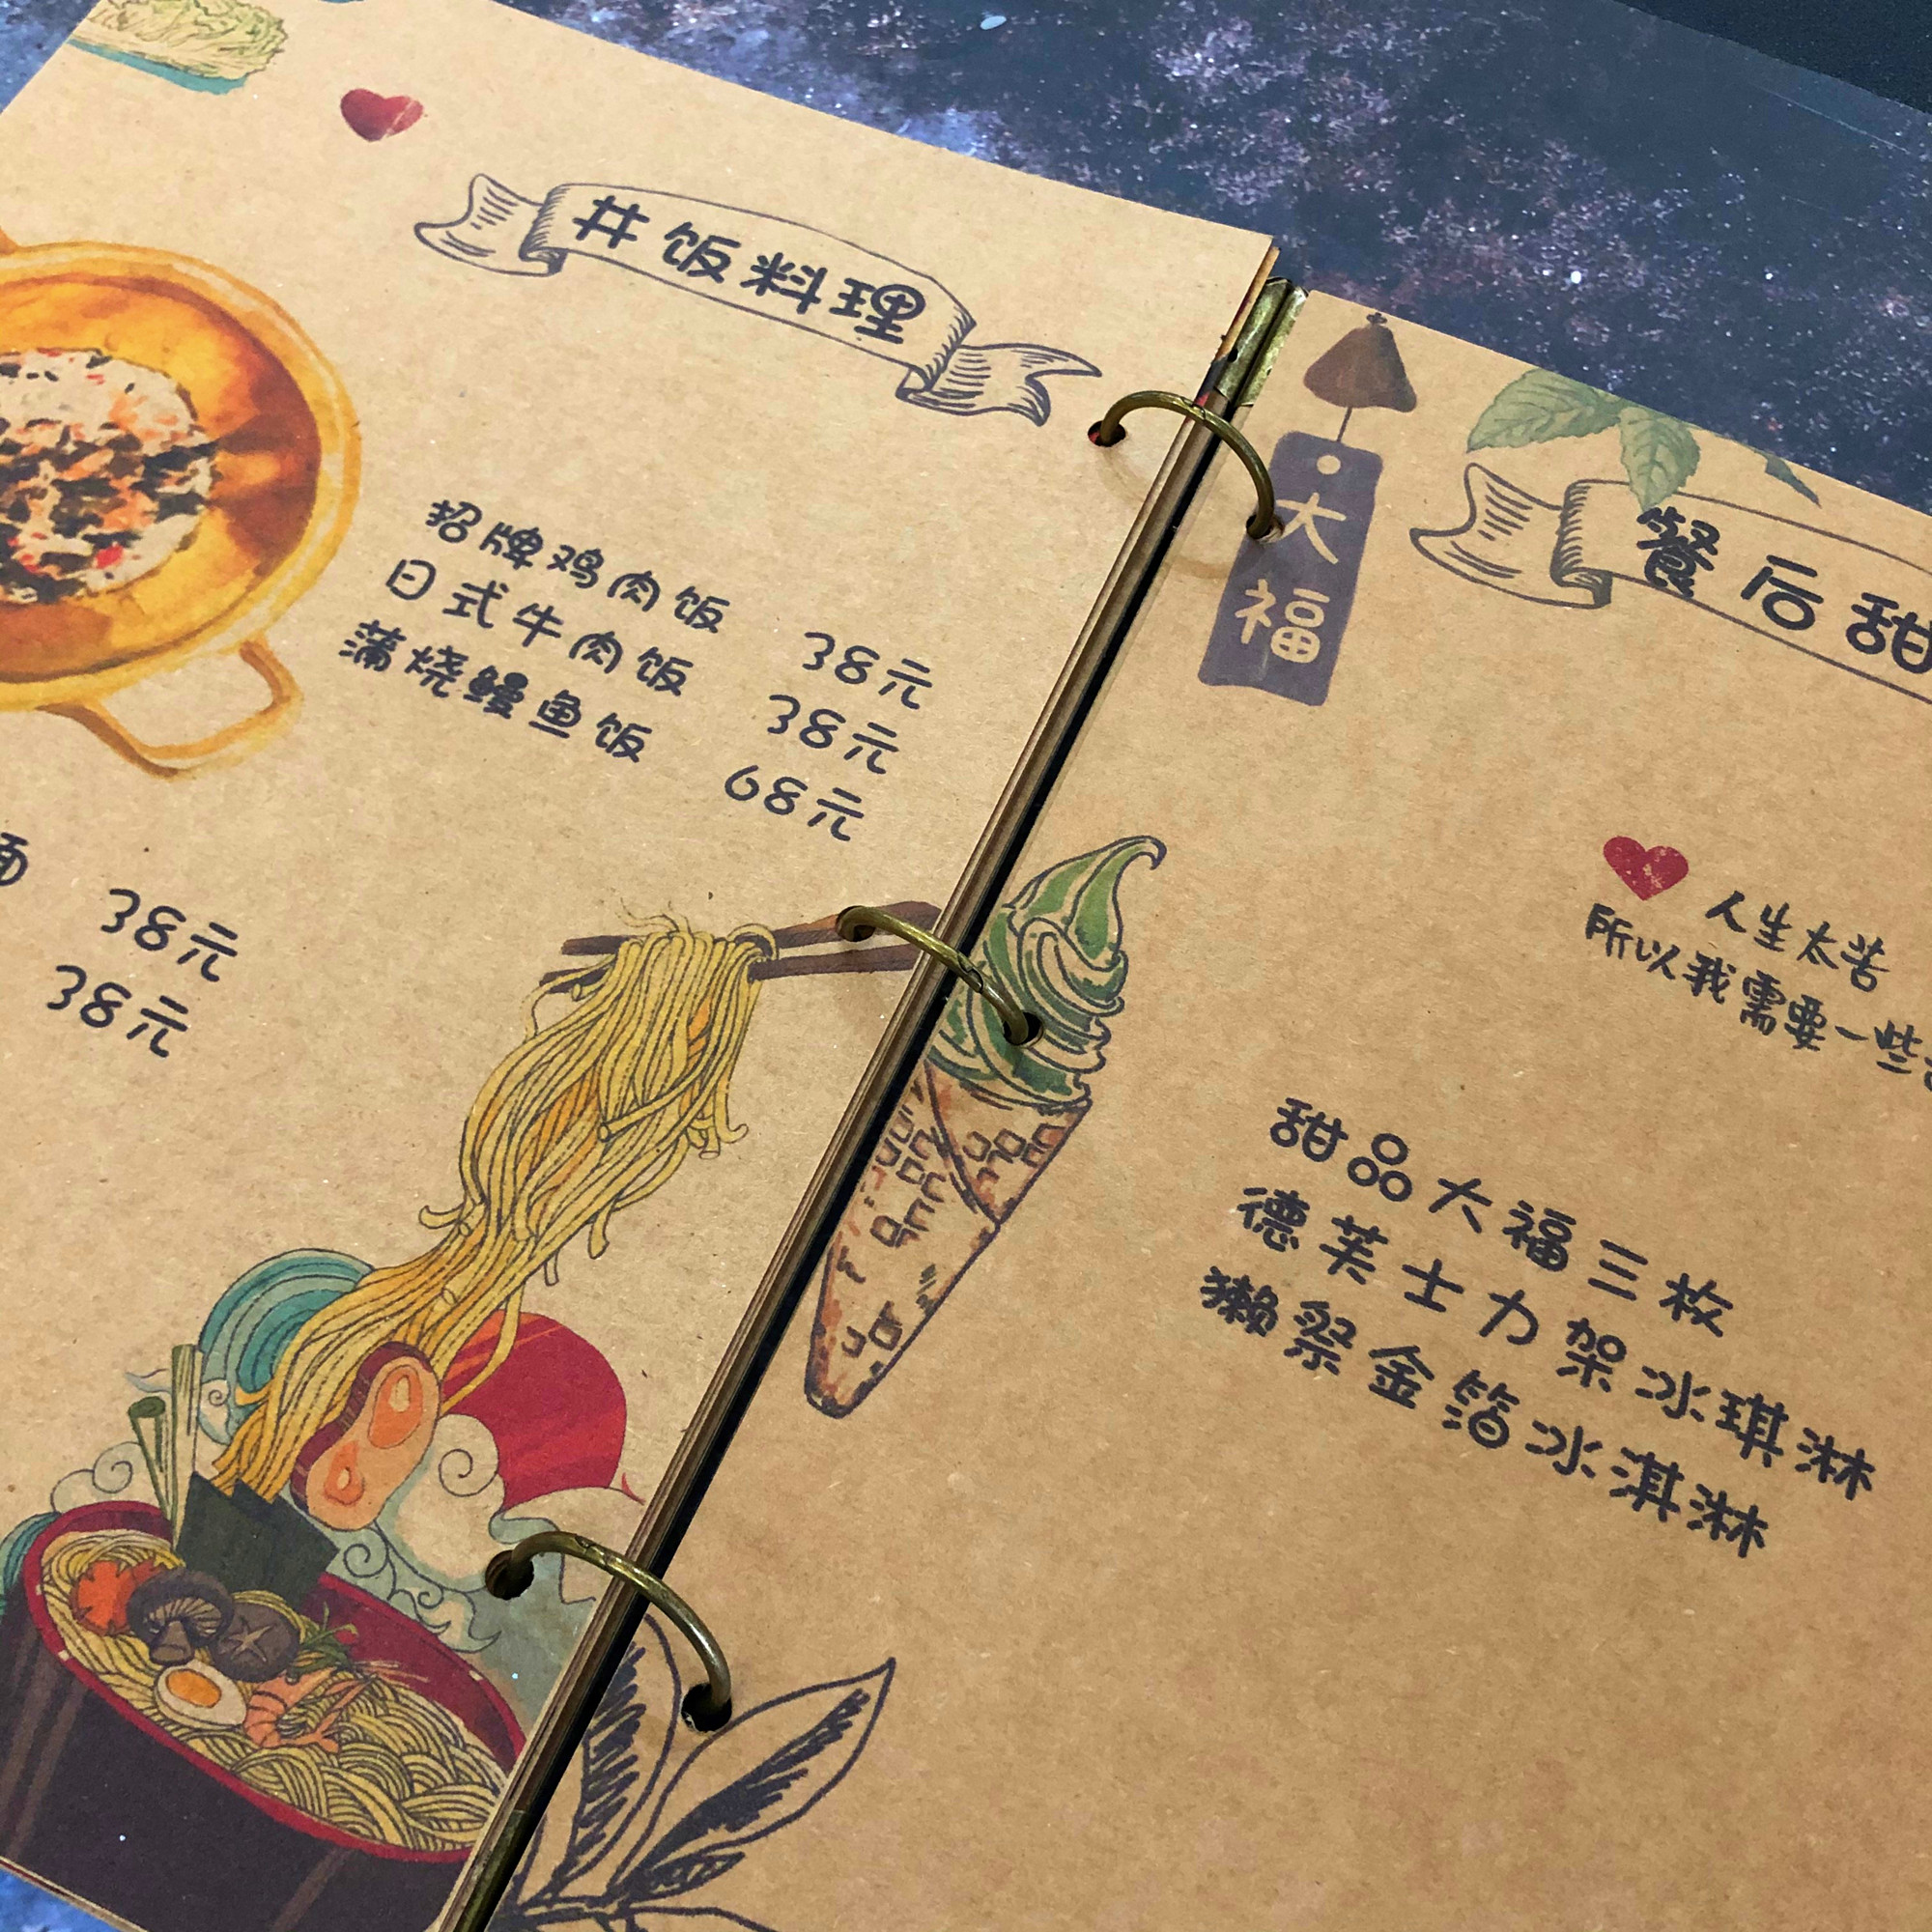 井饭料理
招牌鸡肉饭 38元
日式牛肉饭 38元
蒲烧鳗鱼饭 68元
面 38元
38元
大福
餐后甜
人生太苦
所以我需要一些
甜品大福三枚
德芙士力架冰琪淋
獭祭金箔冰淇淋